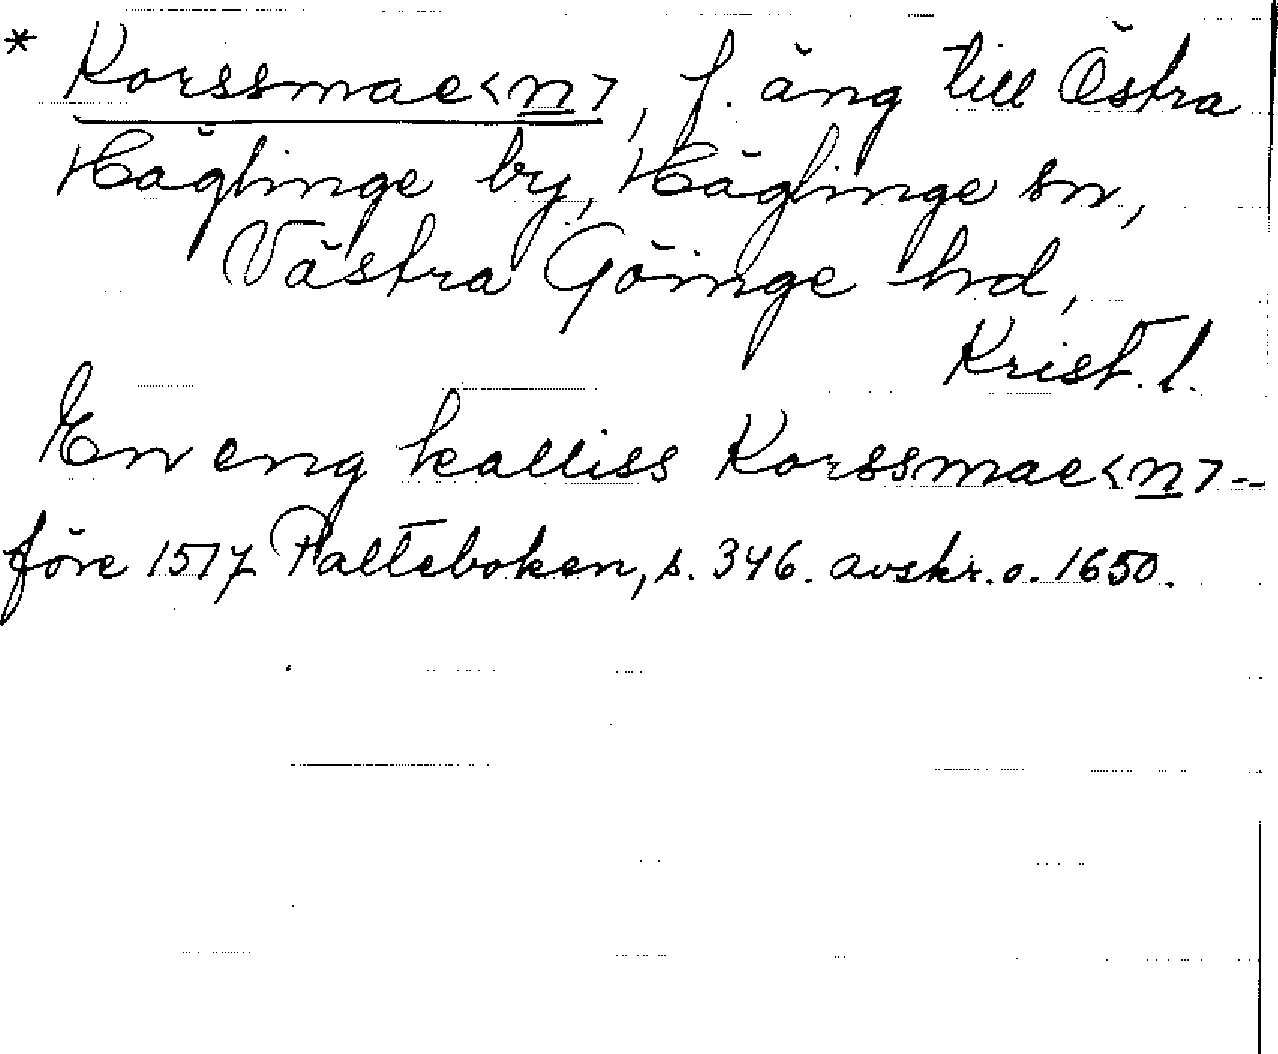 * Korssmae<n>, f. äng till Östra
Häglinge by, Häglinge sn,
Västra Göinge hd,
Krist. l.
En eng kalliss Korssmae<n> --
före 1517 Palteboken, s. 346. avskr. o. 1650.